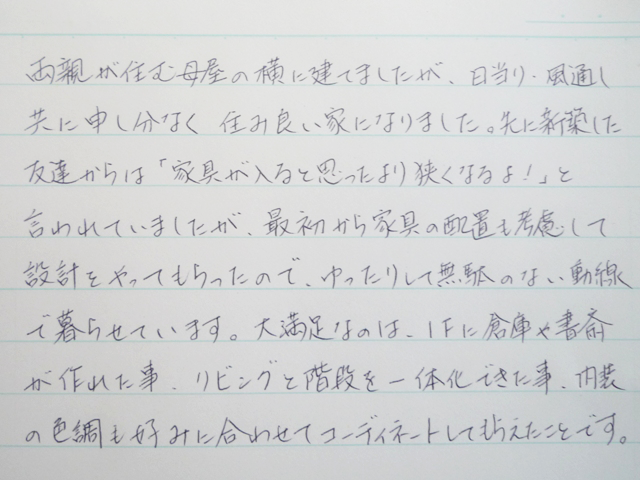 両親が住む母屋の横に建てましたが、日当り・風通し
共に申し分なく 住み良い家になりました。先に新築した
友達からは「家具が入ると思ったより狭くなるよ!」と
言われていましたが、最初から家具の配置も考慮して
設計をやってもらったので、ゆったりして無駄のない動線
で暮らせています。大満足なのは、1Fに倉庫や書斎
が作れた事、リビングと階段を一体化できた事、内装
の色調も好みに合わせてコーディネートしてもらえたことです。